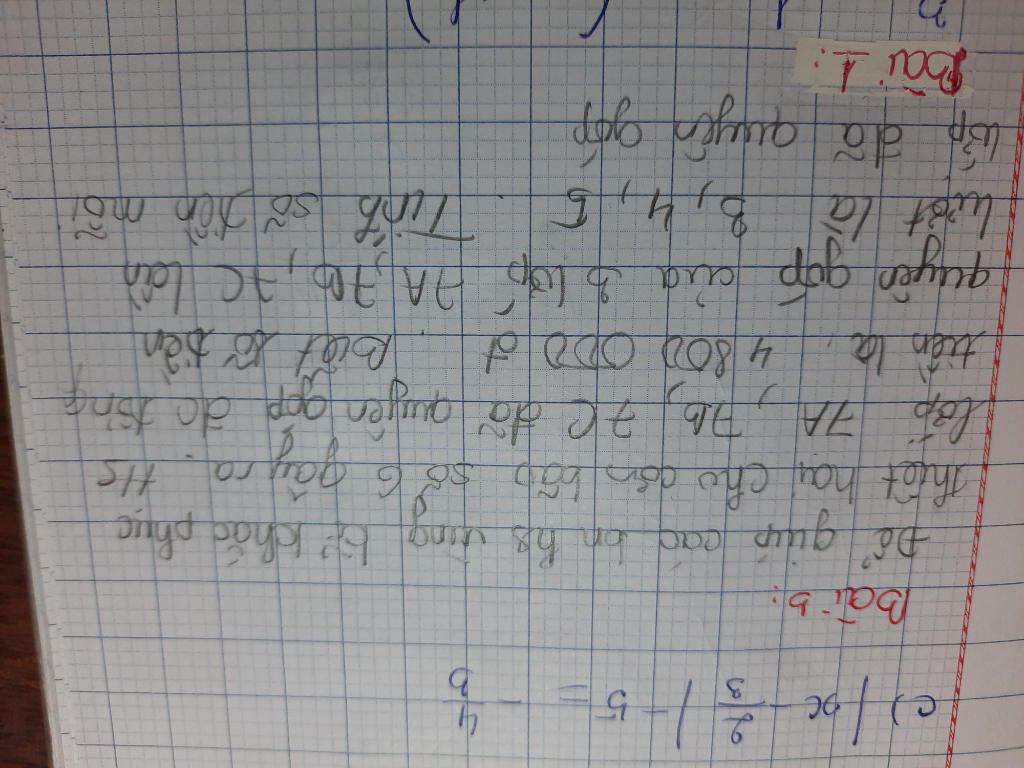 c) | x - 2/3 | - 5 = - 4/6
Bài 6:
Để giúp các bn hs vùng lũ khắc phục
thiệt hại cho cơn bão số 6 gây ra. Hs
lớp 7A, 7B, 7C đã quyên góp đc tổng
tiền là: 4 800 000 đ. Biết số tiền
quyên góp của 3 lớp 7A, 7B, 7C lần
lượt là 3, 4, 5. Tính số tiền mỗi
lớp đã quyên góp
Bài 1: